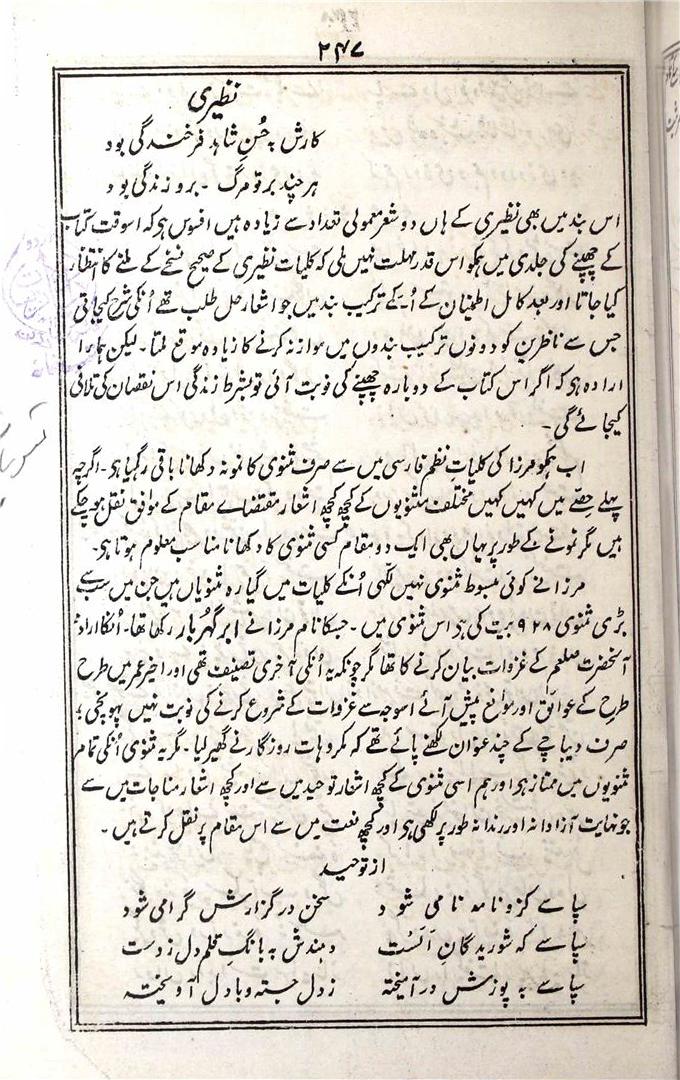 ۲۴۷
نظیری
کارش بہ حُسنِ شاہد فرخندگی بود
ہر چند بر تو مرگ ۔ برو زندگی بود
اس بند میں بھی نظیری کے ہاں دو شعر معمولی تعداد سے زیادہ ہیں افسوس ہی کہ اسوقت کتاب
کے چھپنے کی جلدی میں ہمکو اس قدر مہلت نہیں ملی کہ کلیات نظیری کے صحیح نسخے کے ملنے کا انتظار
کیا جاتا اور بعد کامل اطمینان کے اُسکے ترکیب بند میں جو اشعار حل طلب تھے اُنکی شرح کیجاتی
جس سے ناظرین کو دونوں ترکیب بندوں میں موازنہ کرنے کا زیادہ موقع ملتا۔ لیکن ہمارا
ارادہ ہی کہ اگر اس کتاب کے دوبارہ چھپنے کی نوبت آئی تو بشرط زندگی اس نقصان کی تلافی
کیجائے گی۔
اب ہمکو مرزا کی کلیاتِ نظم فارسی میں سے صرف مثنوی کا نمونہ دکھانا باقی رہگیا ہو۔ اگرچہ
پہلے حصّے میں کہیں کہیں مختلف مثنویوں کے کچھ کچھ اشعار مقتضاے مقام کے موافق نقل ہو چکے
ہیں مگر نمونے کے طور پر یہاں بھی ایک دو مقام کسی مثنوی کا دکھانا مناسب معلوم ہوتا ہی۔
مرزا نے کوئی مبسوط مثنوی نہیں لکھی اُنکے کلیات میں گیارہ مثنویاں ہیں جن میں سب سے
بڑی مثنوی ۹۲۸ بیت کی ہی اس مثنوی میں ۔ جسکا نام مرزا نے ابر گہُربار رکھا تھا۔ اُنکا ارادہ
آنحضرت صلعم کے غزوات بیان کرنے کا تھا مگر چونکہ یہ اُنکی آخری تصنیف تھی اور اخیر عمر میں طرح
طرح کے عوائق اور موانع پیش آئے اسوجہ سے غزوات کے شروع کرنے کی نوبت نہیں پہونچی؛
صرف دیباچے کے چند عنوان لکھنے پائے تھے کہ مکروہات روزگار نے گھیر لیا۔ مگر یہ مثنوی اُنکی تمام
مثنویوں میں ممتاز ہو اور ہم اسی مثنوی کے کچھ اشعار توحید میں سے اور کچھ اشعار مناجات میں سے
جو نہایت آزادانہ اور رندانہ طور پر لکھی ہی اور کچھ نعت میں سے اس مقام پر نقل کرتے ہیں۔
از توحید
سپاسے کزو نامہ نامی شود سخن در گزارش گرامی شود
سپاسے کہ شوریدگانِ اَلَست دہندش بہ بانگِ قلم دل ز دست
سپاسے بہ پوزش در آمیختہ ز دل جستہ و با دل آویختہ